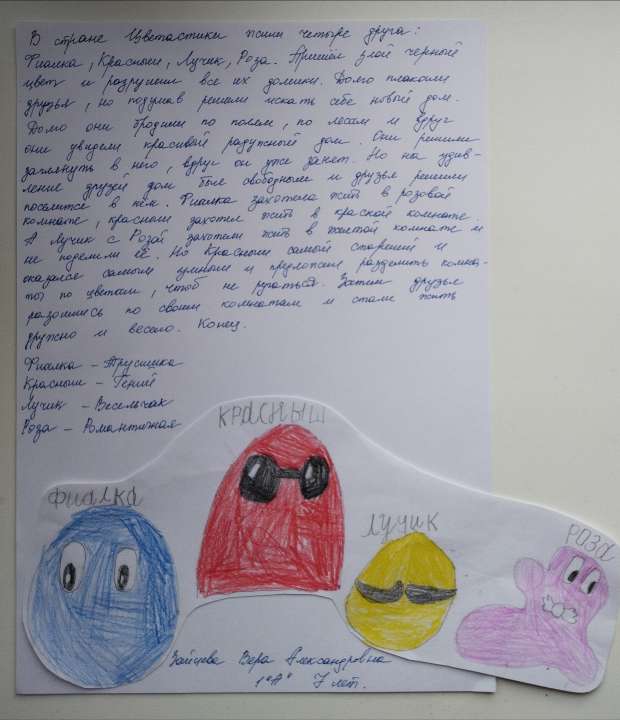 В стране Цветастики жили четыре друга:
Фиалка, Красныш, Лучик, Роза. Пришёл злой черный
цвет и разрушил все их домики. Долго плакали
друзья, но подумав решили искать себе новый дом.
Долго они бродили по полям, по лесам и вдруг
они увидели красивый радужный дом. Они решили
заглянуть в него, вдруг он уже занят. Но на удив-
ление друзей дом был свободным и друзья решили
поселится в нём. Фиалка захотела жить в розовой
комнате, красныш захотел жить в красной комнате.
А Лучик с Розой захотели жить в желтой комнате и
не поделили её. Но Красныш самый старший и
оказался самым умным и предложил разделить комна-
ты по цветам, чтоб не ругаться. Затем друзья
разошлись по своим комнатам и стали жить
дружно и весело. Конец.
Фиалка – Трусишка
Красныш – Гений
Лучик – Весельчак
Роза – Романтичная
КРАСНЫШ
ФИАЛКА
ЛУЧИК
РОЗА
Зайцева Вера Александровна
1"А" 7 лет.